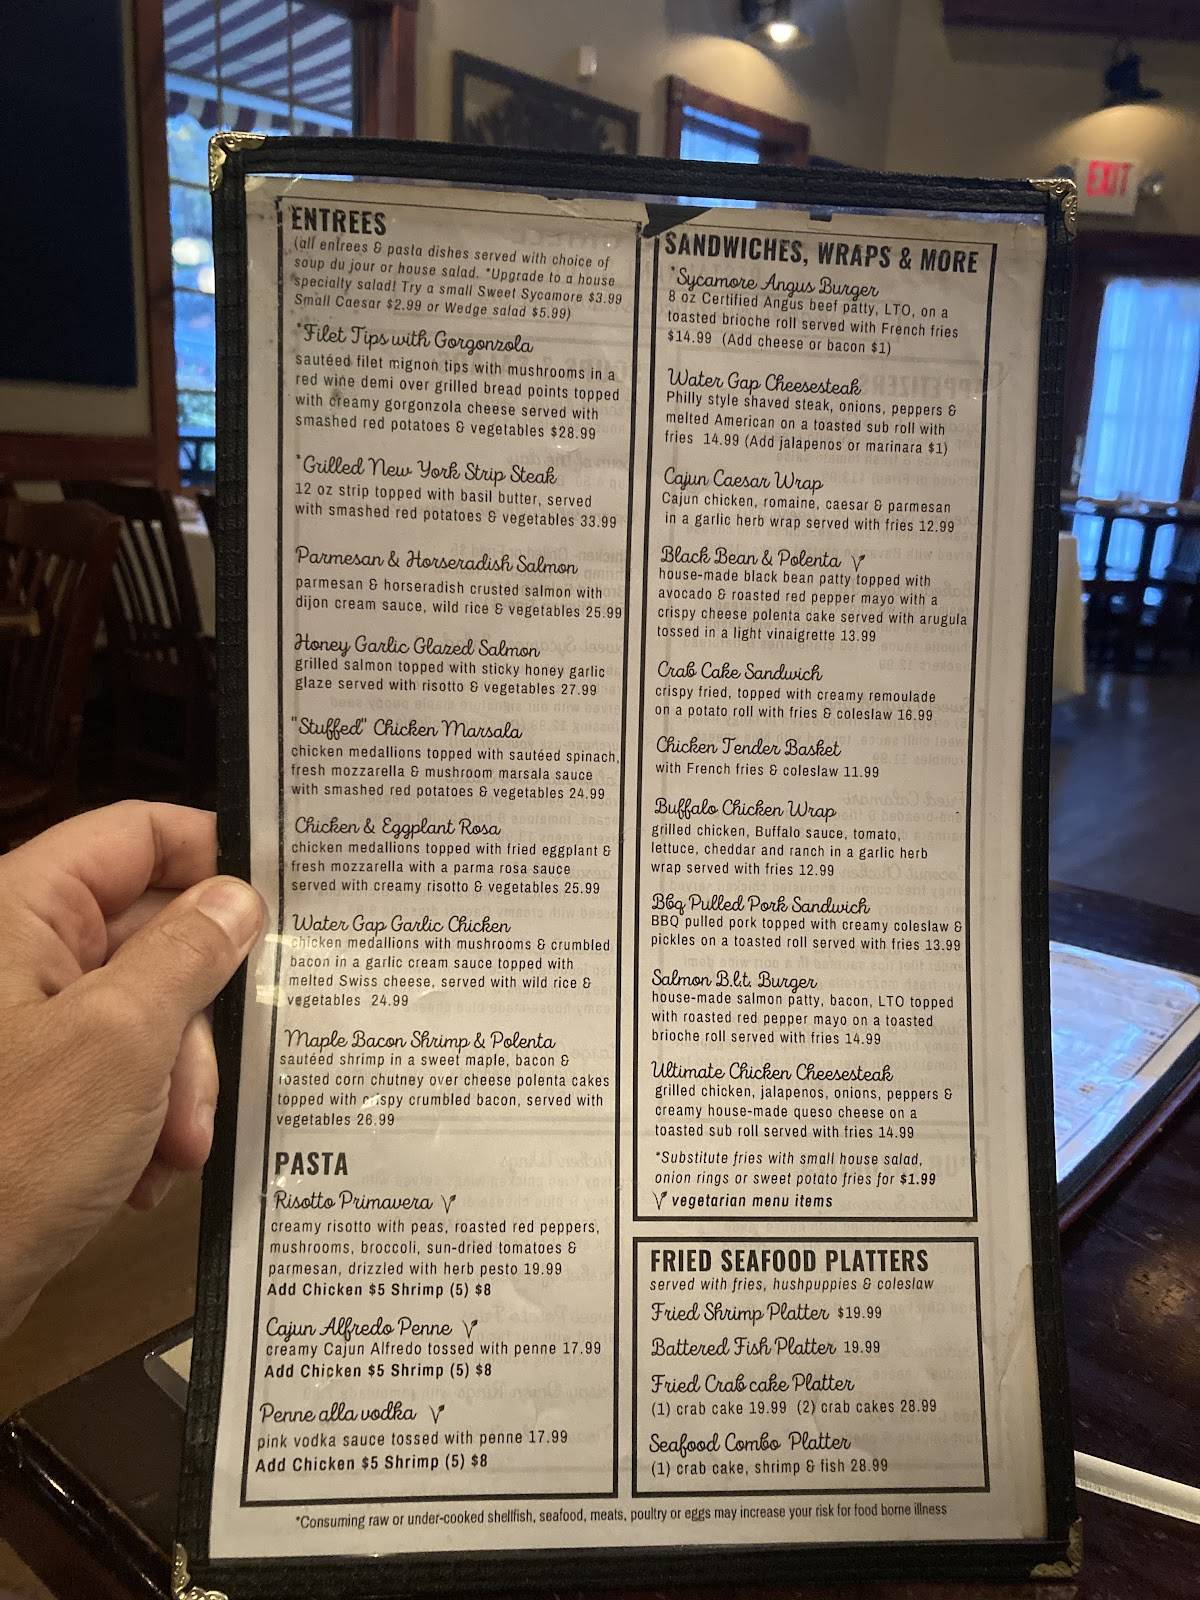 EXIT
ENTREES
(all entrees & pasta dishes served with choice of
soup du jour or house salad. *Upgrade to a house
specialty salad! Try a small Sweet Sycamore $3.99
Small Caesar $2.99 or Wedge salad $5.99)
*Filet Tips with Gorgonzola
sautéed filet mignon tips with mushrooms in a
red wine demi over grilled bread points topped
with creamy gorgonzola cheese served with
smashed red potatoes & vegetables $28.99
*Grilled New York Strip Steak
12 oz strip topped with basil butter, served
with smashed red potatoes & vegetables 33.99
Parmesan & Horseradish Salmon
parmesan & horseradish crusted salmon with
dijon cream sauce, wild rice & vegetables 25.99
Honey Garlic Glazed Salmon
grilled salmon topped with sticky honey garlic
glaze served with risotto & vegetables 27.99
"Stuffed" Chicken Marsala
chicken medallions topped with sautéed spinach,
fresh mozzarella & mushroom marsala sauce
with smashed red potatoes & vegetables 24.99
Chicken & Eggplant Rosa
chicken medallions topped with fried eggplant &
fresh mozzarella with a parma rosa sauce
served with creamy risotto & vegetables 25.99
Water Gap Garlic Chicken
chicken medallions with mushrooms & crumbled
bacon in a garlic cream sauce topped with
melted Swiss cheese, served with wild rice &
vegetables 24.99
Maple Bacon Shrimp & Polenta
sautéed shrimp in a sweet maple, bacon &
roasted corn chutney over cheese polenta cakes
topped with crispy crumbled bacon, served with
vegetables 26.99
PASTA
Risotto Primavera V
creamy risotto with peas, roasted red peppers,
mushrooms, broccoli, sun-dried tomatoes &
parmesan, drizzled with herb pesto 19.99
Add Chicken $5 Shrimp (5) $8
Cajun Alfredo Penne V
creamy Cajun Alfredo tossed with penne 17.99
Add Chicken $5 Shrimp (5) $8
Penne alla vodka V
pink vodka sauce tossed with penne 17.99
Add Chicken $5 Shrimp (5) $8
SANDWICHES, WRAPS & MORE
*Sycamore Angus Burger
8 oz Certified Angus beef patty, LTO, on a
toasted brioche roll served with French fries
$14.99 (Add cheese or bacon $1)
Water Gap Cheesesteak
Philly style shaved steak, onions, peppers &
melted American on a toasted sub roll with
fries 14.99 (Add jalapenos or marinara $1)
Cajun Caesar Wrap
Cajun chicken, romaine, caesar & parmesan
in a garlic herb wrap served with fries 12.99
Black Bean & Polenta V
house-made black bean patty topped with
avocado & roasted red pepper mayo with a
crispy cheese polenta cake served with arugula
tossed in a light vinaigrette 13.99
Crab Cake Sandwich
crispy fried, topped with creamy remoulade
on a potato roll with fries & coleslaw 16.99
Chicken Tender Basket
with French fries & coleslaw 11.99
Buffalo Chicken Wrap
grilled chicken, Buffalo sauce, tomato,
lettuce, cheddar and ranch in a garlic herb
wrap served with fries 12.99
Bbq Pulled Pork Sandwich
BBQ pulled pork topped with creamy coleslaw &
pickles on a toasted roll served with fries 13.99
Salmon B.l.t. Burger
house-made salmon patty, bacon, LTO topped
with roasted red pepper mayo on a toasted
brioche roll served with fries 14.99
Ultimate Chicken Cheesesteak
grilled chicken, jalapenos, onions, peppers &
creamy house-made queso cheese on a
toasted sub roll served with fries 14.99
*Substitute fries with small house salad,
onion rings or sweet potato fries for $1.99
V vegetarian menu items
FRIED SEAFOOD PLATTERS
served with fries, hushpuppies & coleslaw
Fried Shrimp Platter $19.99
Battered Fish Platter 19.99
Fried Crab cake Platter
(1) crab cake 19.99 (2) crab cakes 28.99
Seafood Combo Platter
(1) crab cake, shrimp & fish 28.99
*Consuming raw or under-cooked shellfish, seafood, meats, poultry or eggs may increase your risk for food borne illness